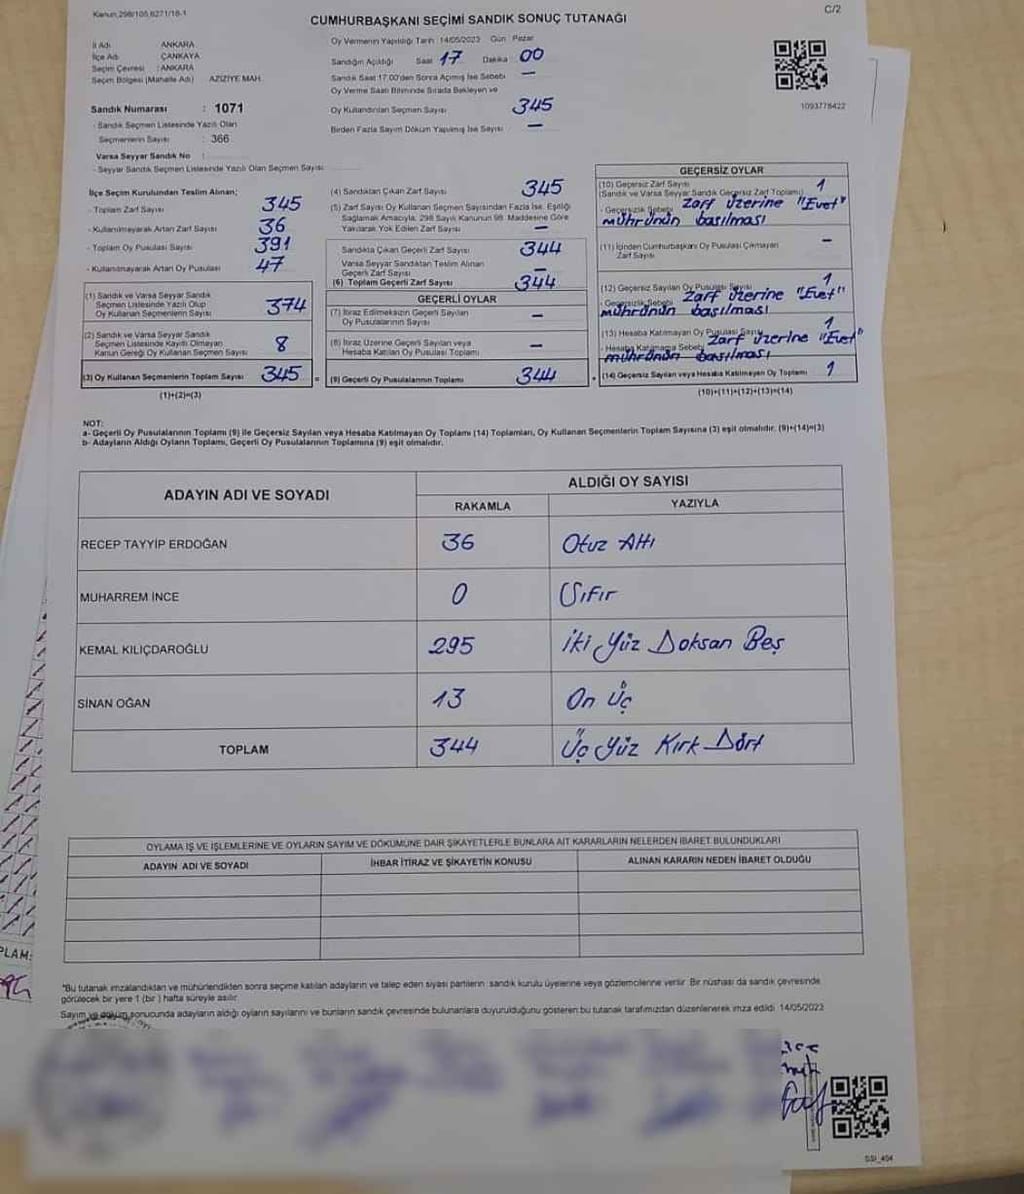 Kanun, 298/105,6271/18-1
C/2
CUMHURBAŞKANI SEÇİMİ SANDIK SONUÇ TUTANAĞI
İl Adı ANKARA
İlçe Adı ÇANKAYA
Seçim Çevresi : ANKARA
Seçim Bölgesi (Mahalle Adı) AZİZİYE MAH.
Sandık Numarası : 1071
- Sandık Seçmen Listesinde Yazılı Olan
Seçmenlerin Sayısı : 366
Varsa Seyyar Sandık No :
- Seyyar Sandık Seçmen Listesinde Yazılı Olan Seçmen Sayısı
Oy Vermenin Yapıldığı Tarih : 14/05/2023 Gün : Pazar
Sandığın Açıldığı Saat 17 Dakika 00
Sandık Saat 17.00'den Sonra Açılmış İse Sebebi —
Oy Verme Saati Bitiminde Sırada Bekleyen ve
Oy Kullandırılan Seçmen Sayısı 345
Birden Fazla Sayım Döküm Yapılmış İse Sayısı —
1093778422
İlçe Seçim Kurulundan Teslim Alınan;
- Toplam Zarf Sayısı 345
- Kullanılmayarak Artan Zarf Sayısı 36
- Toplam Oy Pusulası Sayısı 391
- Kullanılmayarak Artan Oy Pusulası 47
(1) Sandık ve Varsa Seyyar Sandık
Seçmen Listesinde Yazılı Olup
Oy Kullanan Seçmenlerin Sayısı 374
(2) Sandık ve Varsa Seyyar Sandık
Seçmen Listesinde Kayıtlı Olmayan
Kanun Gereği Oy Kullanan Seçmen Sayısı 8
(3) Oy Kullanan Seçmenlerin Toplam Sayısı 345 =
(1)+(2)=(3)
(4) Sandıktan Çıkan Zarf Sayısı 345
(5) Zarf Sayısı Oy Kullanan Seçmen Sayısından Fazla İse, Eşitliği
Sağlamak Amacıyla, 298 Sayılı Kanunun 98. Maddesine Göre
Yakılarak Yok Edilen Zarf Sayısı —
Sandıkta Çıkan Geçerli Zarf Sayısı 344
Varsa Seyyar Sandıktan Teslim Alınan
Geçerli Zarf Sayısı —
(6) Toplam Geçerli Zarf Sayısı 344
GEÇERLİ OYLAR
(7) İtiraz Edilmeksizin Geçerli Sayılan
Oy Pusulalarının Sayısı —
(8) İtiraz Üzerine Geçerli Sayılan veya
Hesaba Katılan Oy Pusulası Toplamı —
(9) Geçerli Oy Pusulalarının Toplamı 344 +
GEÇERSİZ OYLAR
(10) Geçersiz Zarf Sayısı 1
(Sandık ve Varsa Seyyar Sandık Geçersiz Zarf Toplamı)
- Geçersizlik Sebebi Zarf üzerine "Evet"
mührünün basılması
(11) İçinden Cumhurbaşkanı Oy Pusulası Çıkmayan
Zarf Sayısı —
(12) Geçersiz Sayılan Oy Pusulası Sayısı 1
- Geçersizlik Sebebi Zarf üzerine "Evet"
mührünün basılması
(13) Hesaba Katılmayan Oy Pusulası Sayısı 1
- Hesaba Katılmama Sebebi Zarf üzerine "Evet"
mührünün basılması
(14) Geçersiz Sayılan veya Hesaba Katılmayan Oy Toplamı 1
(10)+(11)+(12)+(13)=(14)
NOT:
a- Geçerli Oy Pusulalarının Toplamı (9) ile Geçersiz Sayılan veya Hesaba Katılmayan Oy Toplamı (14) Toplamları, Oy Kullanan Seçmenlerin Toplam Sayısına (3) eşit olmalıdır. (9)+(14)=(3)
b- Adayların Aldığı Oyların Toplamı, Geçerli Oy Pusulalarının Toplamına (9) eşit olmalıdır.
ADAYIN ADI VE SOYADI
ALDIĞI OY SAYISI
RAKAMLA YAZIYLA
RECEP TAYYİP ERDOĞAN 36 Otuz Altı
MUHARREM İNCE 0 Sıfır
KEMAL KILIÇDAROĞLU 295 İki Yüz Doksan Beş
SİNAN OĞAN 13 On Üç
TOPLAM 344 Üç Yüz Kırk Dört
OYLAMA İŞ VE İŞLEMLERİNE VE OYLARIN SAYIM VE DÖKÜMÜNE DAİR ŞİKAYETLERLE BUNLARA AİT KARARLARIN NELERDEN İBARET BULUNDUKLARI
ADAYIN ADI VE SOYADI İHBAR İTİRAZ VE ŞİKAYETİN KONUSU ALINAN KARARIN NEDEN İBARET OLDUĞU
PLAM:
"Bu tutanak imzalandıktan ve mühürlendikten sonra seçime katılan adayların ve talep eden siyasi partilerin sandık kurulu üyelerine veya gözlemcilerine verilir. Bir nüshası da sandık çevresinde
görülecek bir yere 1 (bir ) hafta süreyle asılır.
Sayım ve döküm sonucunda adayların aldığı oyların sayılarını ve bunların sandık çevresinde bulunanlara duyurulduğunu gösteren bu tutanak tarafımızdan düzenlenerek imza edildi. 14/05/2023
SSI_404